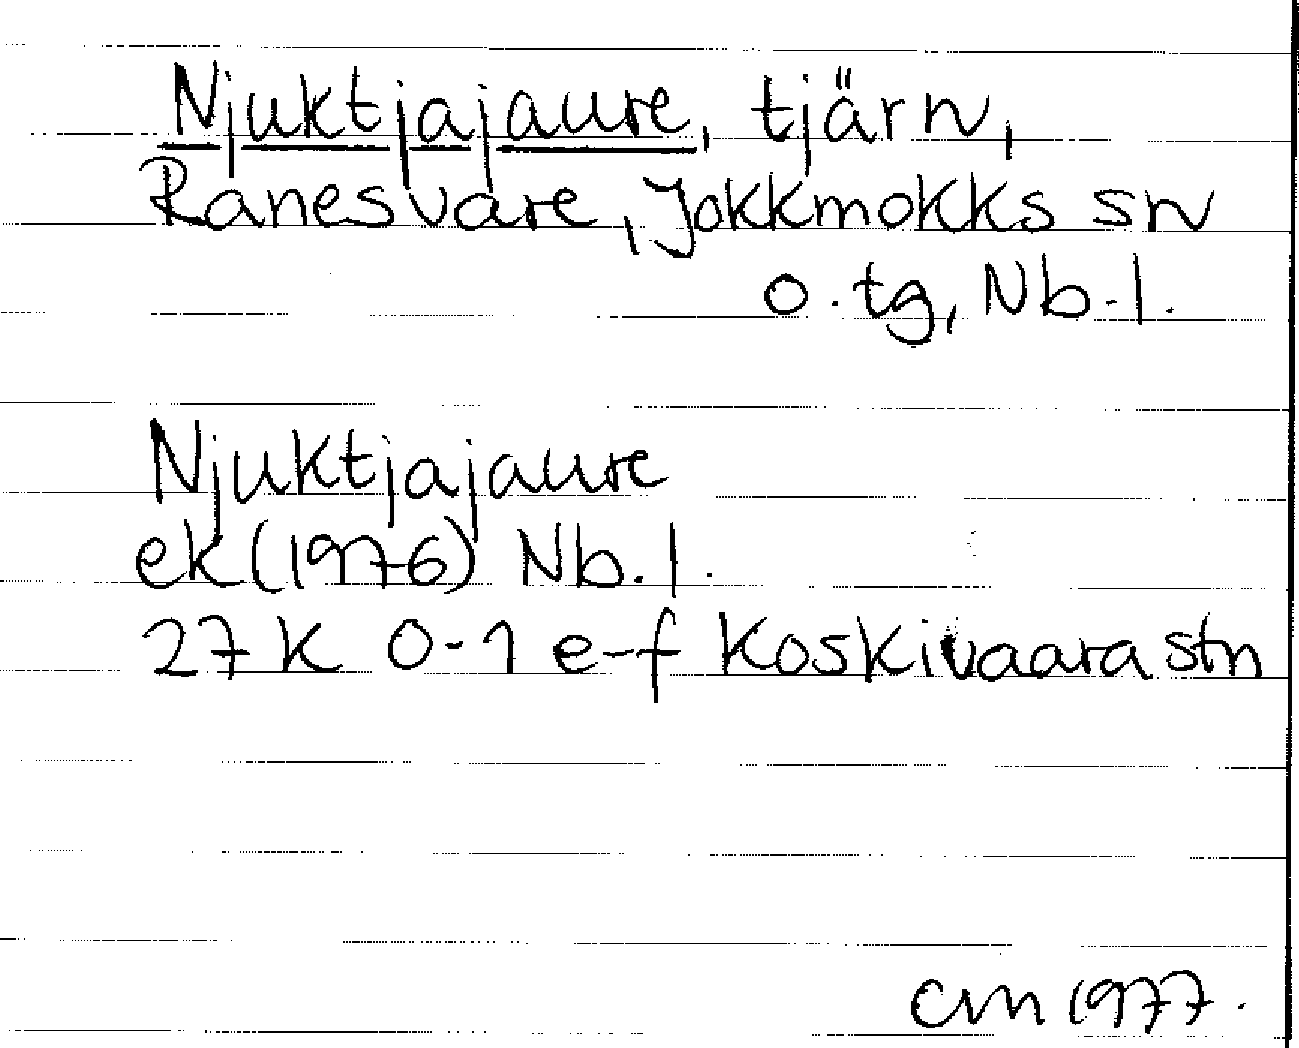 Njuktjajaure, tjärn,
Ranesvare, Jokkmokks sn
o. tg, Nb. l.
Njuktjajaure
ek (1976) Nb. l.
27 K 0-1 e-f Koskivaara stn
cm 1977.